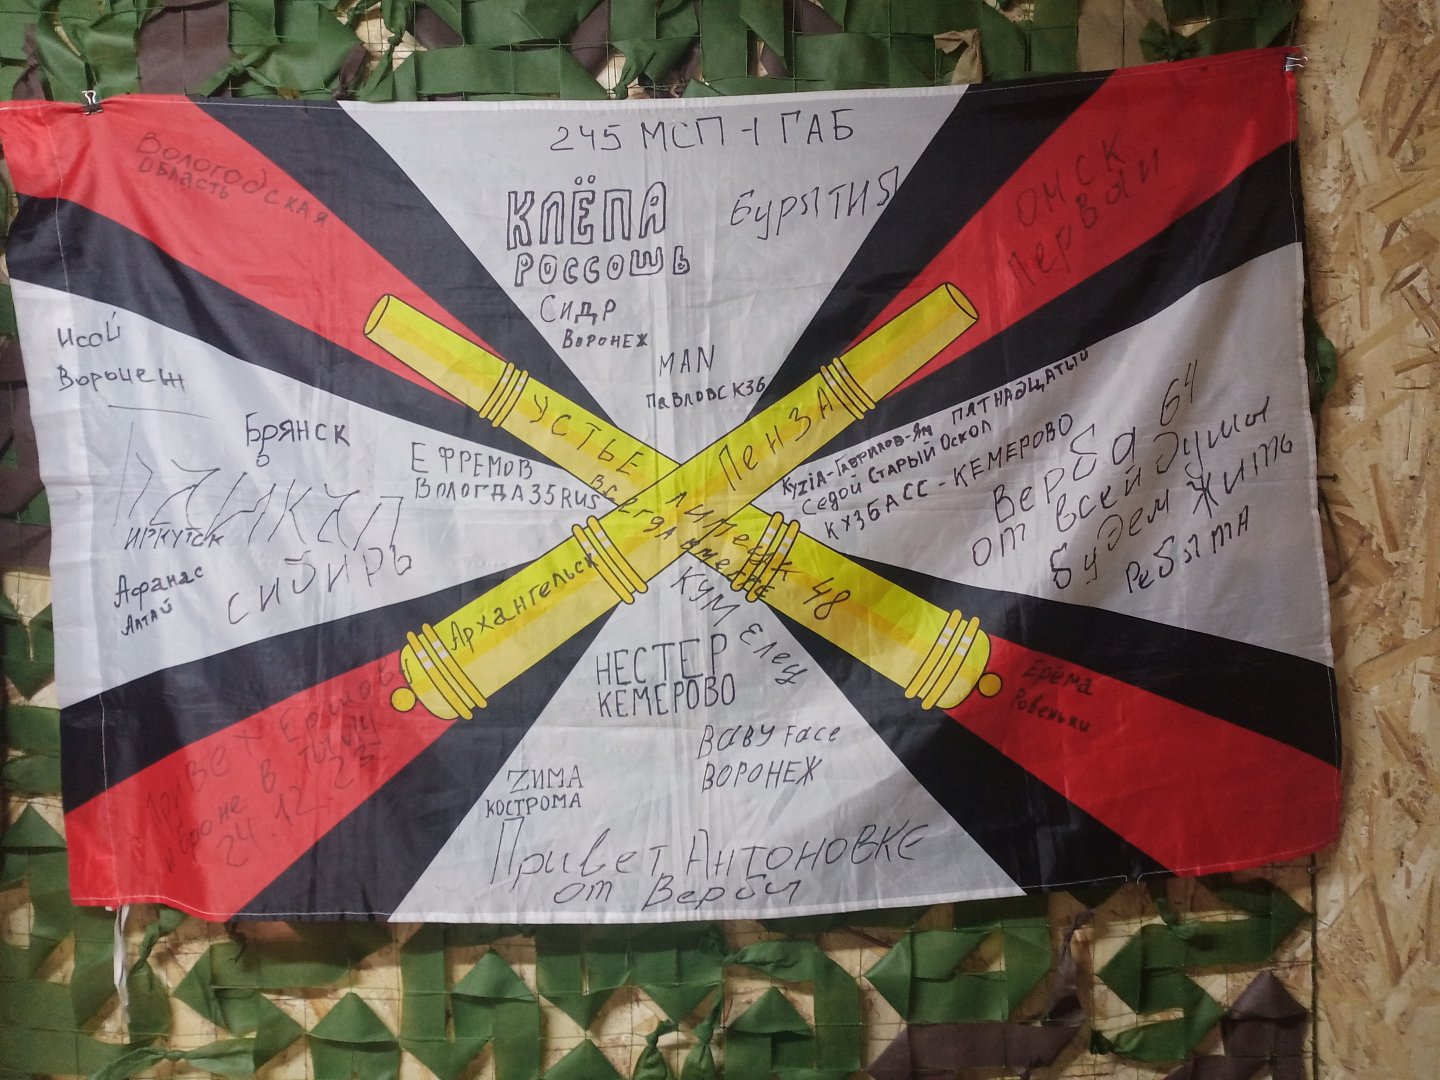 245 МСП-1 ГАБ
Вологодская
область
КЛЁПА
РОССОШЬ
Бурятия
ОМСК
Первай
Сидр
Воронеж
MAN
Павловск36
Исай
Воронеж
Брянск
ИРКУТСК
СИБИРЬ
Афанас
Алтай
ЕФРЕМОВ
ВОЛОГДА35RUS
УСТЬЕ
ВСЕГДА вместе
Пенза
Липецк 48
Архангельск
KyziA-Гаврилов-Ям ПЯТНАДЦАТЫЙ
Седой Старый Оскол
КУЗБАСС-КЕМЕРОВО
Верба 64
от всей души
будем жить
Ребята
КУМ Елец
НЕСТЕР
КЕМЕРОВО
Ерёма
Ровеньки
Baby Face
ВОРОНЕЖ
ZИМА
КОСТРОМА
24.12 23
Привет Антоновке
от Вербы